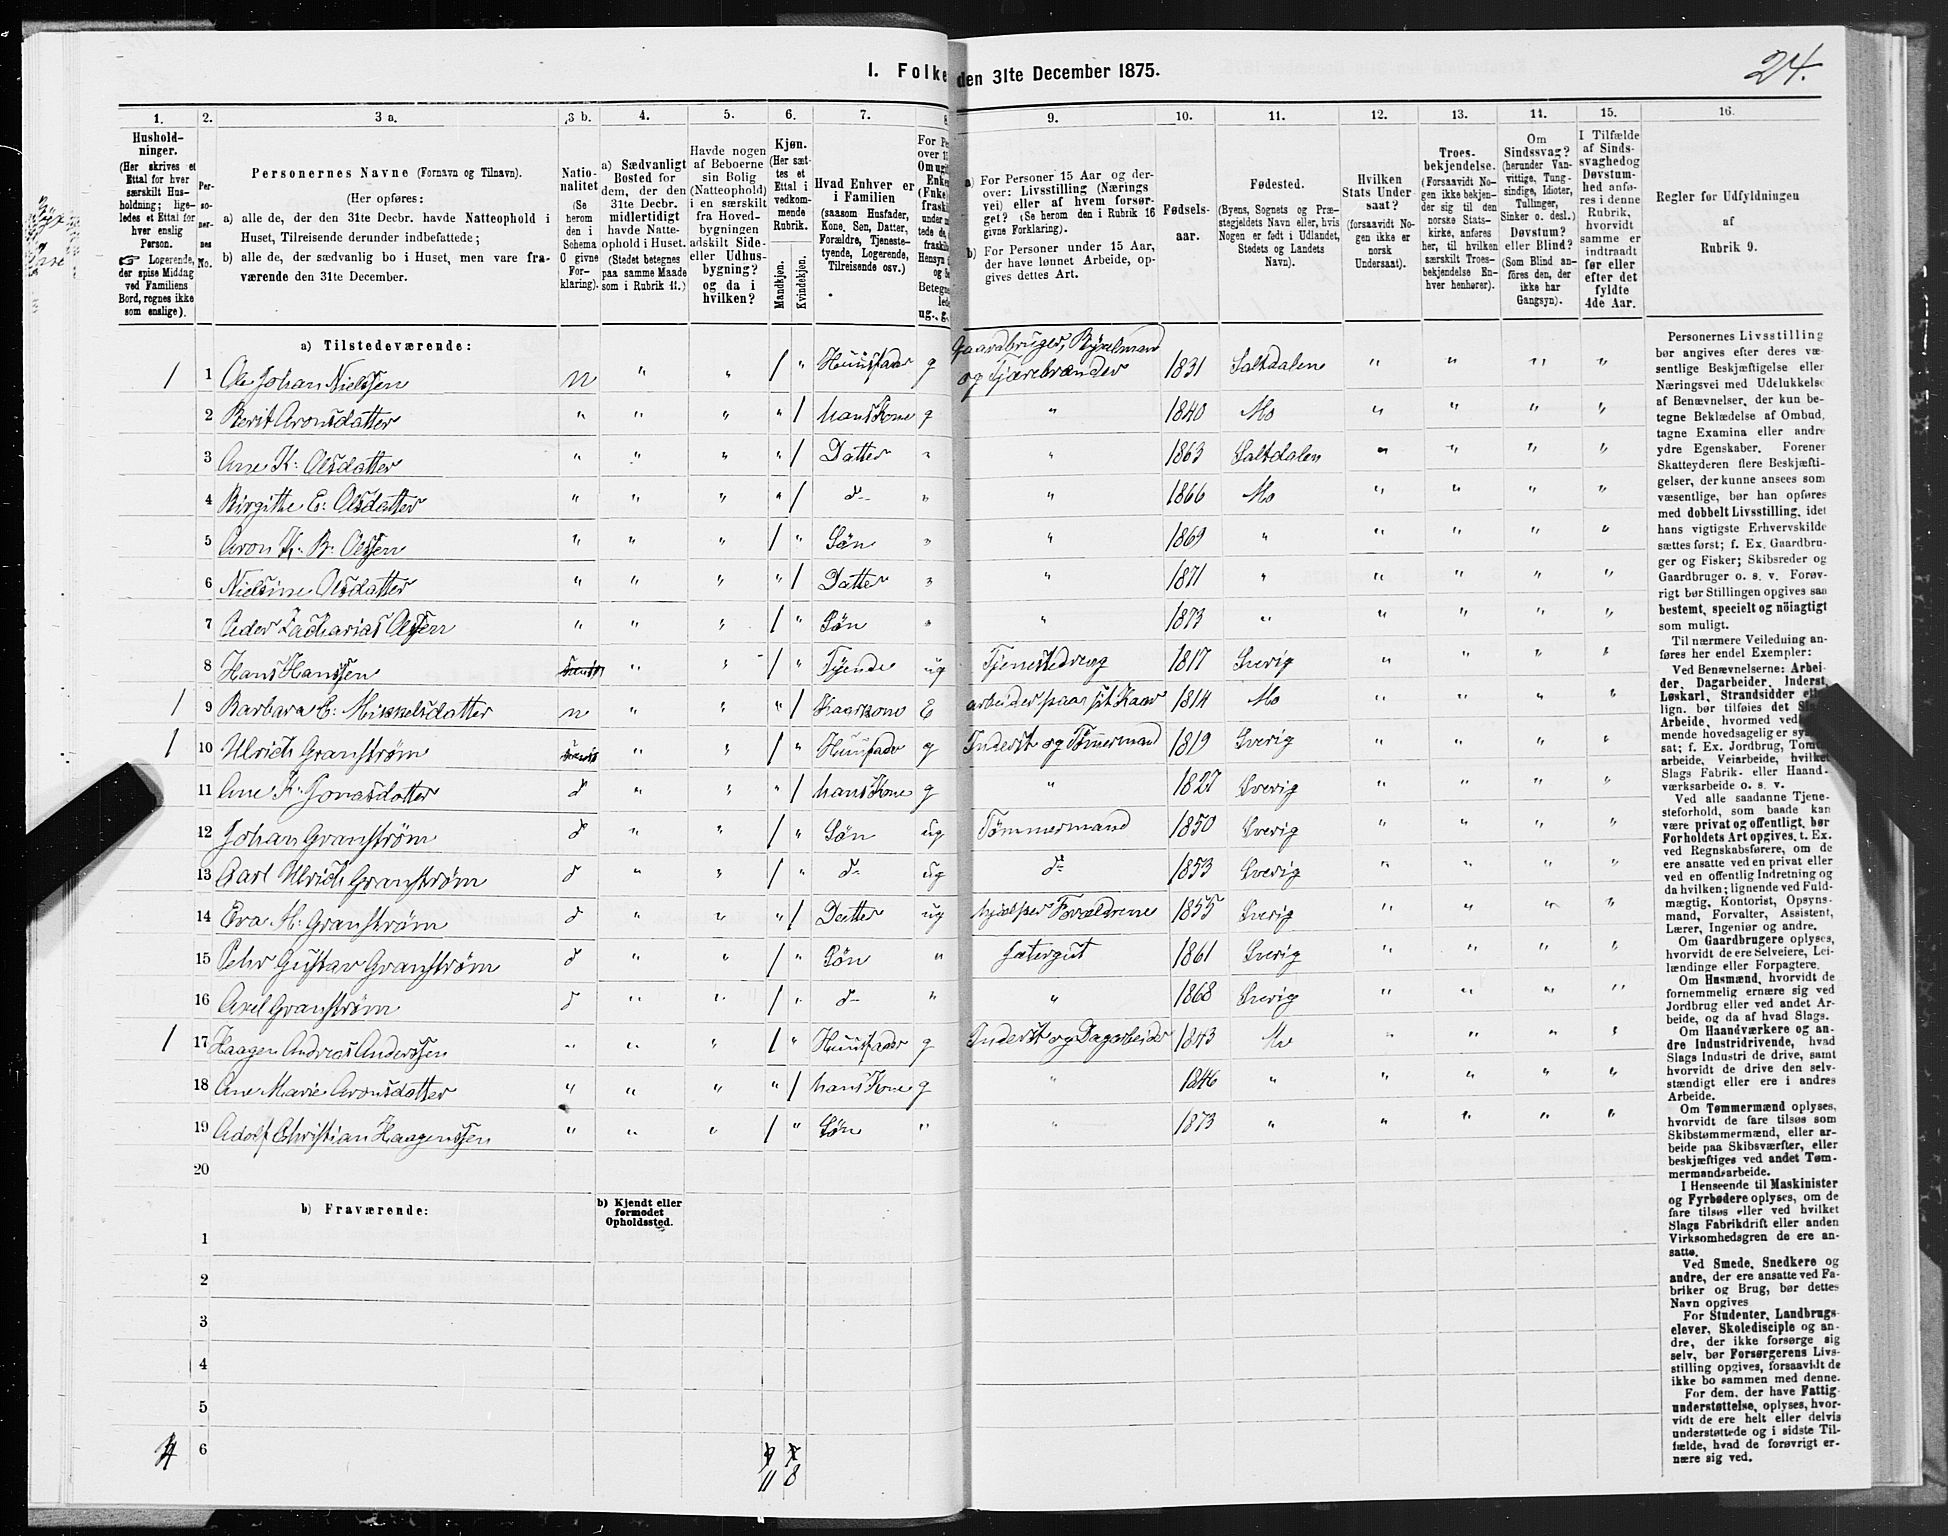 24.
I. Folke den 31te December 1875.
1. 2. 3 a. 3 b. 4. 5. 6. 7. 8 9. 10. 11. 12. 13. 14. 15. 16.
Hushold-
ninger.
(Her skrives et
Ettal for hver
særskilt Hus-
holdning; lige-
ledes et Ettal for
hver enslig
Person.
☞ Logerende,
der spise Middag
ved Familiens
Bord, regnes ikke
som enslige).
Per-
so-
ner-
nes
No.
Personernes Navne (Fornavn og Tilnavn).
(Her opføres:
a) alle de, der den 31te Decbr. havde Natteophold i
Huset, Tilreisende derunder indbefattede;
b) alle de, der sædvanlig bo i Huset, men vare fra-
værende den 31te December.
Natio-
nalitet
(Se
herom
den i
Schema
O givne
For-
klaring).
a) Sædvanligt
Bosted for
dem, der den
31te Decbr.
midlertidigt
havde Natte-
ophold i Huset.
(Stedet betegnes
paa samme Maade
som i Rubrik 11.)
Havde nogen
af Beboerne
sin Bolig
(Natteophold)
i en særskilt
fra Hoved-
bygningen
adskilt Side-
eller Udhus-
bygning?
og da i
hvilken?
Kjøn.
(Her sæt-
tes et
Ettal i
vedkom-
mende
Rubrik.
Mandkjøn.
Kvindekjøn.
Hvad Enhver er
i Familien
(saasom Husfader,
Kone, Søn, Datter,
Forældre, Tjeneste-
tyende, Logerende,
Tilreisende osv.)
a) For Personer 15 Aar og der-
over: Livsstilling (Nærings
vei) eller af hvem forsør-
get? (Se herom den i Rubrik 16
givne Forklaring).
b) For Personer under 15 Aar,
der have lønnet Arbeide, op-
gives dettes Art.
Fødsels-
aar.
Fødested.
(Byens, Sognets og Præ-
stegjeldets Navn eller, hvis
Nogen er født i Udlandet,
Stedets og Landets
Navn).
Hvilken
Stats Under
saat?
(forsaavidt No-
gen ikke er
norsk
Undersaat).
Troes-
bekjendelse.
(Forsaavidt No-
gen ikke bekjen-
der sig til den
norske Stats-
kirke, anføres
her, til hvilken
særskilt Troes-
bekjendelse En-
hver henhører).
Om
Sindssvag?
(herunder Van-
vittige, Tung-
sindige, Idioter,
Tullinger,
Sinker o. desl.)
Døvstum?
eller Blind?
(Som Blind an-
føres den, der
ikke har
Gangsyn).
I Tilfælde
af Sinds-
svaghedog
Døvstum-
hed anfø-
res i denne
Rubrik,
hvorvidt
samme er
indtraadt
før eller
efter det
fyldte
4de Aar.
Regler for Udfyldningen
af
Rubrik 9.
a) Tilstedeværende:
1 1 Ole Johan Nielssen n " " 1 " Huusfader g Gaardbruger, Bøxelmand og Tjærebrænder 1831 Saltdalen " " " "
2 Berit Aronsdatter " " " " 1 hans Kone g " 1840 Mo " " " "
3 Ane K: Olsdatter " " " " 1 Datter " " 1863 Saltdalen " " " "
4 Birgitte E: Olsdatter " " " " 1 d- " " 1866 Mo " " " "
5 Aron K. B: Olssen " " " 1 " Søn " " 1869 " " " " "
6 Nielsine Olsdatter " " " " 1 Datter " " 1871 " " " " "
7 Peder Zacharias Olssen " " " 1 " Søn " " 1873 " " " " "
8 Hans Hanssen " " 1 " Tyende ug Tjenestedreng 1817 Sverig " " " "
1 9 Barbara E: Mikkelsdatter n " " " 1 Kaarkone E arbeider paa sit Kaar 1814 Mo " " " "
1 10 Ulrich Granstrøm " " 1 " Huusfader g Inderst og Tømmermand 1819 Sverig " " " "
11 Ane K: Jonasdatter d " " " 1 hans Kone g " 1827 Sverig " " " "
12 Johan Granstrøm d " " 1 " Søn ug Tømmermand 1850 Sverig " " " "
13 Carl Ulrich Granstrøm d " " 1 " d- ug d- 1853 Sverig " " " "
14 Eva M: Granstrøm d " " " 1 Datter ug hjælper Forældrene 1855 Sverig " " " "
15 Pehr Gustav Granstrøm d " " 1 " Søn " Jætergut 1861 Sverig " " " "
16 Axel Granstrøm d " " 1 " d- " " 1868 Sverig " " " "
1 17 Haagen Andreas Anderssen " " " 1 " Huusfader g Inderst og Dagarbeider 1843 Mo " " " "
18 Ane Marie Aronsdatter " " " " 1 hans Kone g " 1846 " " " " "
19 Adolf Christian Haagenssen " " " 1 " Søn " " 1873 " " " " "
20
b) Fraværende:
b) Kjendt eller
formodet
Opholdssted.
1
2
3
4
5
4 6 11 8
Personernes Livsstilling
bør angives efter deres væ-
sentlige Beskjæftigelse eller
Næringsvei med Udelukkelse
af Benævnelser, der kun be-
tegne Beklædelse af Ombud,
tagne Examina eller andre
ydre Egenskaber. Forener
Skatteyderen flere Beskjæfti-
gelser, der kunne ansees som
væsentlige, bør han opføres
med dobbelt Livsstilling, idet
hans vigtigste Erhvervskilde
sættes først; f. Ex. Gaardbru-
ger og Fisker; Skibsreder og
Gaardbruger o. s. v. Forøv-
rigt bør Stillingen opgives saa
bestemt, specielt og nöiagtigt
som muligt.
Til nærmere Veiledning an-
føres her endel Exempler:
Ved Benævnelserne: Arbei-
der, Dagarbeider, Inderst,
Løskarl, Strandsidder
lign. bør tilføies det
Arbeide, hvormed
mende hovedsagelig er
sat; f. Ex. Jordbrug,
arbeide, Veiarbeide, hvilket
Slags Fabrik- eller Haand-
værksarbeide o. s. v.
Ved alle saadanne Tjene-
steforhold, som baade kan
være privat og offentligt, bør
Forholdets Art opgives, t. Ex.
ved Regnskabsførere, om de
ere ansatte ved en privat eller
ved en offentlig Indretning og
da hvilken; lignende ved Fuld-
mægtig, Kontorist, Opsyns-
mand, Forvalter, Assistent,
Lærer, Ingeniør og andre.
Om Gaardbrugere oplyses,
hvorvidt de ere Selveiere, Lei-
lændinge eller Forpagtere.
Om Husmænd, hvorvidt de
fornemmelig ernære sig ved
Jordbrug eller ved andet Ar-
beide, og da af hvad Slags.
Om Haandværkere og an-
dre Industridrivende, hvad
Slags Industri de drive, samt
hvorvidt de drive den selv-
stændigt eller ere i andres
Arbeide.
Om Tømmermænd oplyses,
hvorvidt de fare tilsøs som
Skibstømmermænd, eller ar-
beide paa Skibsværfter, eller
beskjæftiges ved andet Tøm-
mermandsarbeide.
I Henseende til Maskinister
og Fyrbødere oplyses, om de
fare tilsøs eller ved hvilket
Slags Fabrikdrift eller anden
Virksomhedsgren de ere an-
satte.
Ved Smede, Snedkere og
andre, der ere ansatte ved Fa-
briker og Brug, bør dettes
Navn opgives
For Studenter, Landbrugs-
elever, Skoledisciple og an-
dre, der ikke forsørge sig
selv, bør Forsørgerens Livs-
stilling opgives, forsaavidt de
ikke bo sammen med denne.
For dem, der have Fattig-
understøttelse, oplyses, hvor-
vidt de ere helt eller delvis
understøttede og i sidste Til-
fælde, hvad de forøvrigt er-
nære sig ved.